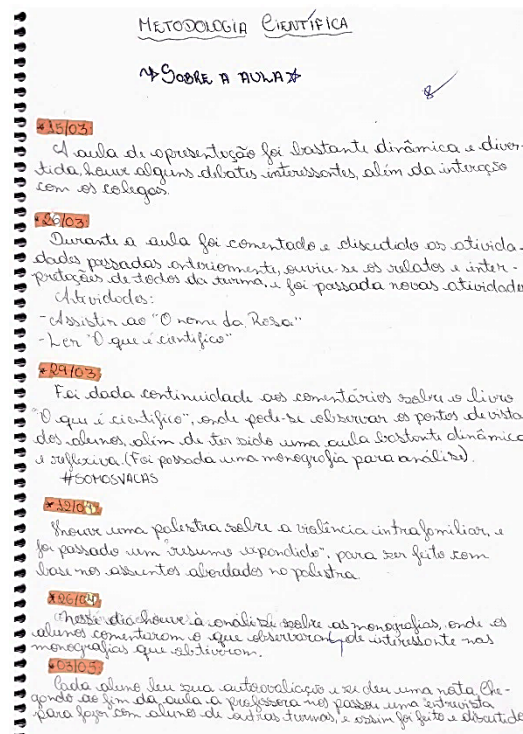 METODOLOGIA CIENTÍFICA
SOBRE A AULA
15/03:
A aula de apresentação foi bastante dinâmica e diver-
tida, houve alguns debates interessantes, além da interação
com os colegas.
/03:
Durante a aula foi comentado e discutido as ativida-
dades passadas anteriormente, ouviu-se os relatos e inter-
pretações de todos da turma, e foi passada novas atividades
Atividades:
- Assistir ao "O nome da Rosa"
- Ler "O que é científico"
29/03:
Foi dada continuidade aos comentários sobre o livro
"O que é científico", onde pode-se observar os pontos de vista
dos alunos, além de ter sido uma aula bastante dinâmica
e reflexiva. (Foi passada uma monografia para análise).
#SOMOSVACAS
12/04
Houve uma palestra sobre a violência intrafamiliar, e
foi passado um "resumo expandido", para ser feito com
base nos assuntos abordados no palestra.
26/04
Nesse dia houve à análise sobre as monografias, onde os
alunos comentaram o que observaram de interessante nas
monografias que obtiveram.
03/05
Cada aluno leu sua autoavaliação e se deu uma nota. Che-
gando ao fim da aula a professora nos passou uma entrevista
para fazer com alunos de outras turmas, e assim foi feito e discutido